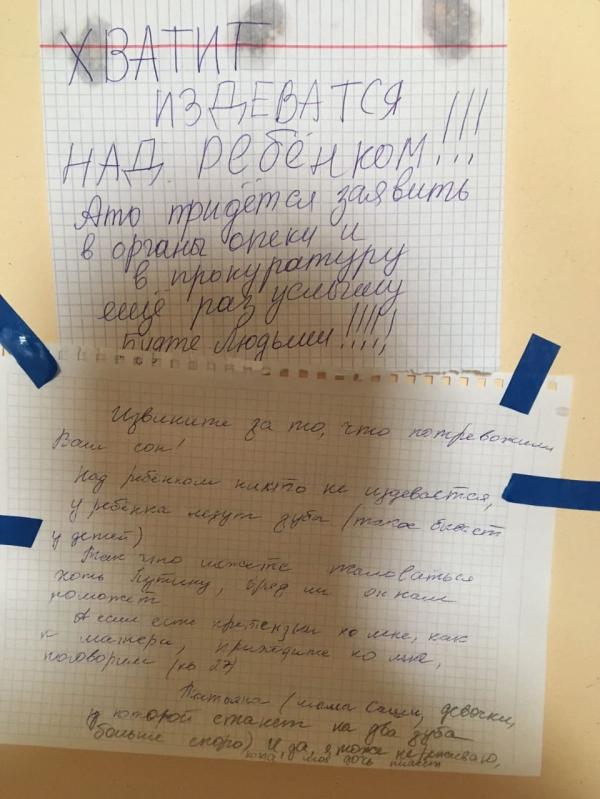 ХВАТИТ
ИЗДЕВАТСЯ
НАД РЕБЁНКОМ!!!
Ато придётся заявить
в органы опеки и
в прокуратуру
ещё раз услышу
Будте Людьми!!!!!
Извините за то, что потревожили
Ваш сон!
Над ребенком никто не издевается,
у ребенка лезут зуба (такое бывает
у детей)
Так что можете жаловаться
хоть Путину, вряд ли он нам
поможет
А если есть претензии ко мне, как
к матери, приходите ко мне,
поговорим (кв 27)
Татьяна (мама Саши, девочки,
у которой станет на два зуба
больше скоро) И да, я тоже не
когда моя дочь плачет